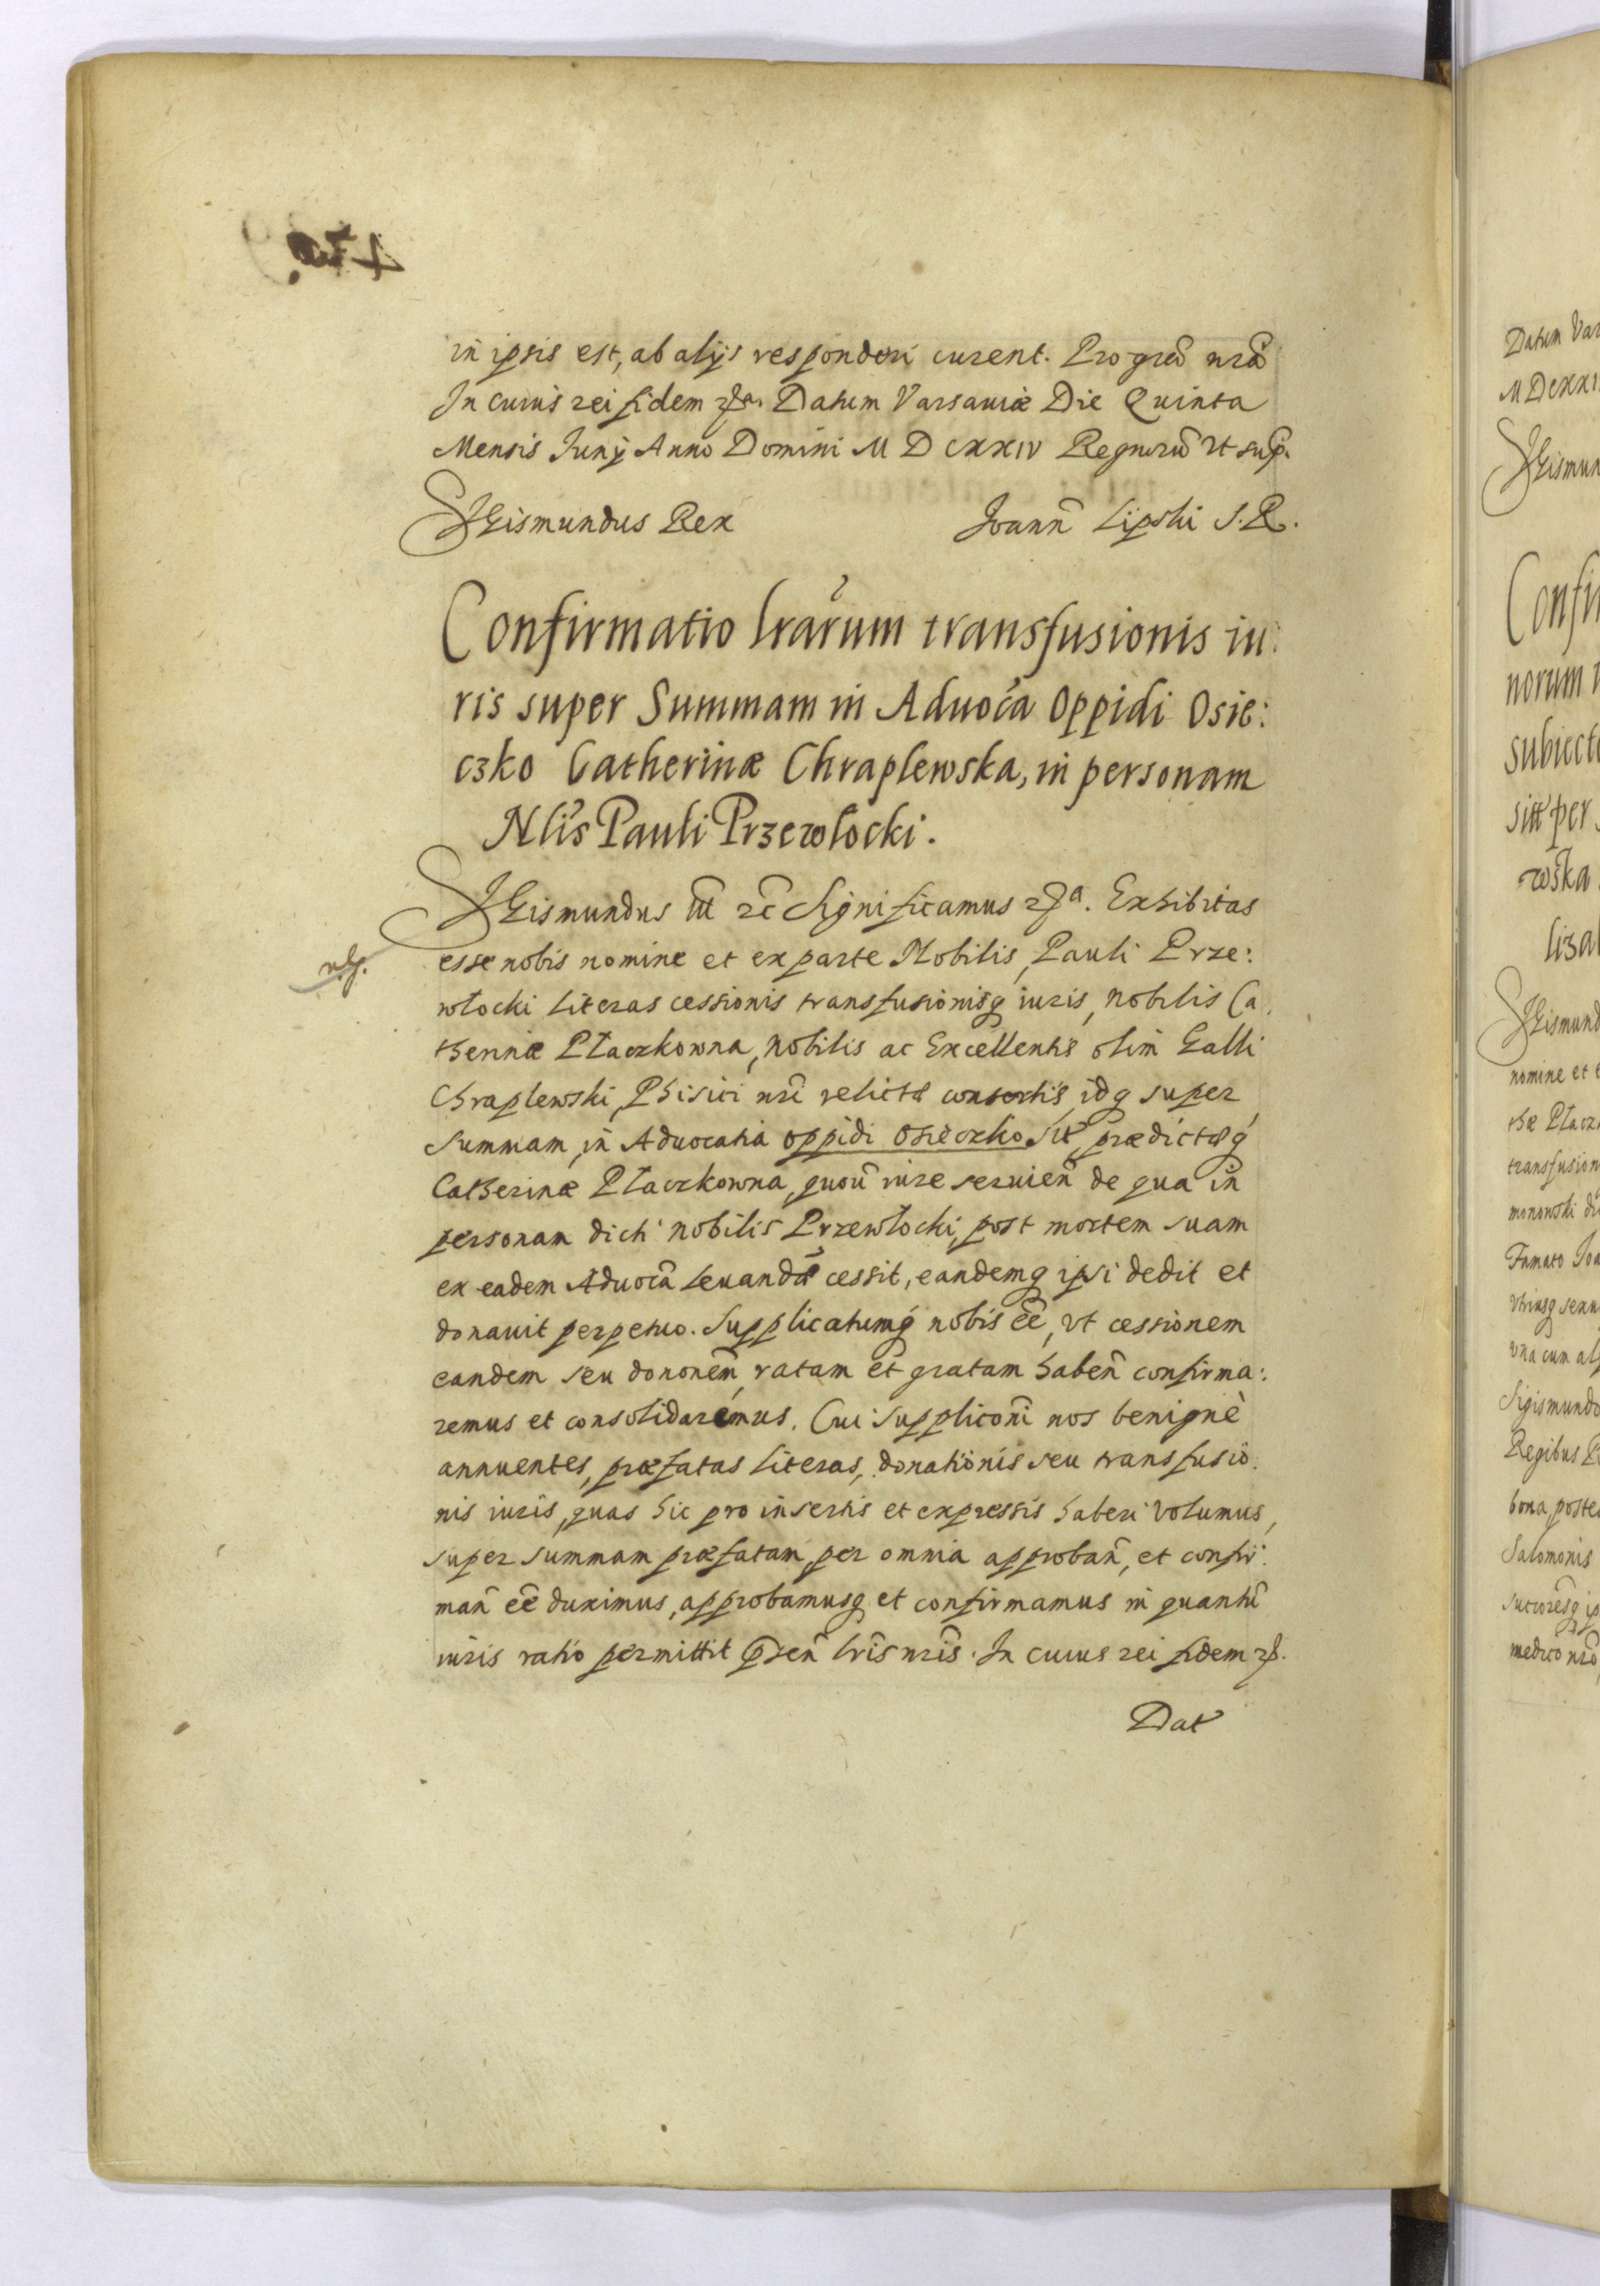 in ipsis est, ab alijs responderi curent. Pro gr̃a nr̃a
In cuius rei fidem Datum Varsaviæ Die Quinta
Mensis Junij Anno Domini M D CXXIV Regnorũ Vt sup.
SIGismundus Rex Joanñ Lipski S. R.
Confirmatio lr̃arum transfusionis iu:
ris super Summam in Aduoc̃a Oppidi Osie:
czko Catherinæ Chraplewska, in personam
Nlis̃ Pauli Przewłocki.
SIGismundus III rc̃ Significamus Exhibitas
esse nobis nomine et ex parte Nobilis, Pauli Prze:
włocki literas cessionis transfusionisq iuris, nobilis Ca:
therinæ Płaczkowna, nobilis ac Excellentis olim Galli
Chraplewski, Phisici nr̃i relictæ consortis, idq super
summam, in Aduocatia oppidi Osieczko sit̃, prædictæq
Catherinæ Płaczkowna, quoũ iure seruien̄ de qua in
personam dicti nobilis Przewłocki, post mortem suam
ex eadem Aduoc̃a leuandã cessit, eandemq ipsi dedit et
donauit perpetuo. Supplicatumq nobis ee͂, vt cessionem
eandem seu dononem̃, ratam et gratam haben̄ confirma:
remus et consolidaremus. Cui Supplicon̄i nos benignè
annuentes, præfatas literas, donationis seu transfusio:
nis iuris, quas hic pro insertis et expressis haberi volumus,
super summam præfatam, per omnia approban̄, et confir:
man̄ ee͂ duximus, approbamusq et confirmamus in quantũ
iuris ratio permittit p̃sen̄ lr̃is nr̃is. In cuius rei fidem
Dat
Datum Var
M DCXXI
SIGismun
Confir
norum
subiect
sitt per
wska
lizab
SIGismund
nomine et
thæ Płacz
transfusion
monowski
Famato Joa
Vtriusq sexu
vna cum al
Sigismundo
Regibus P
bona poste
Salomonis
medico nr̃o